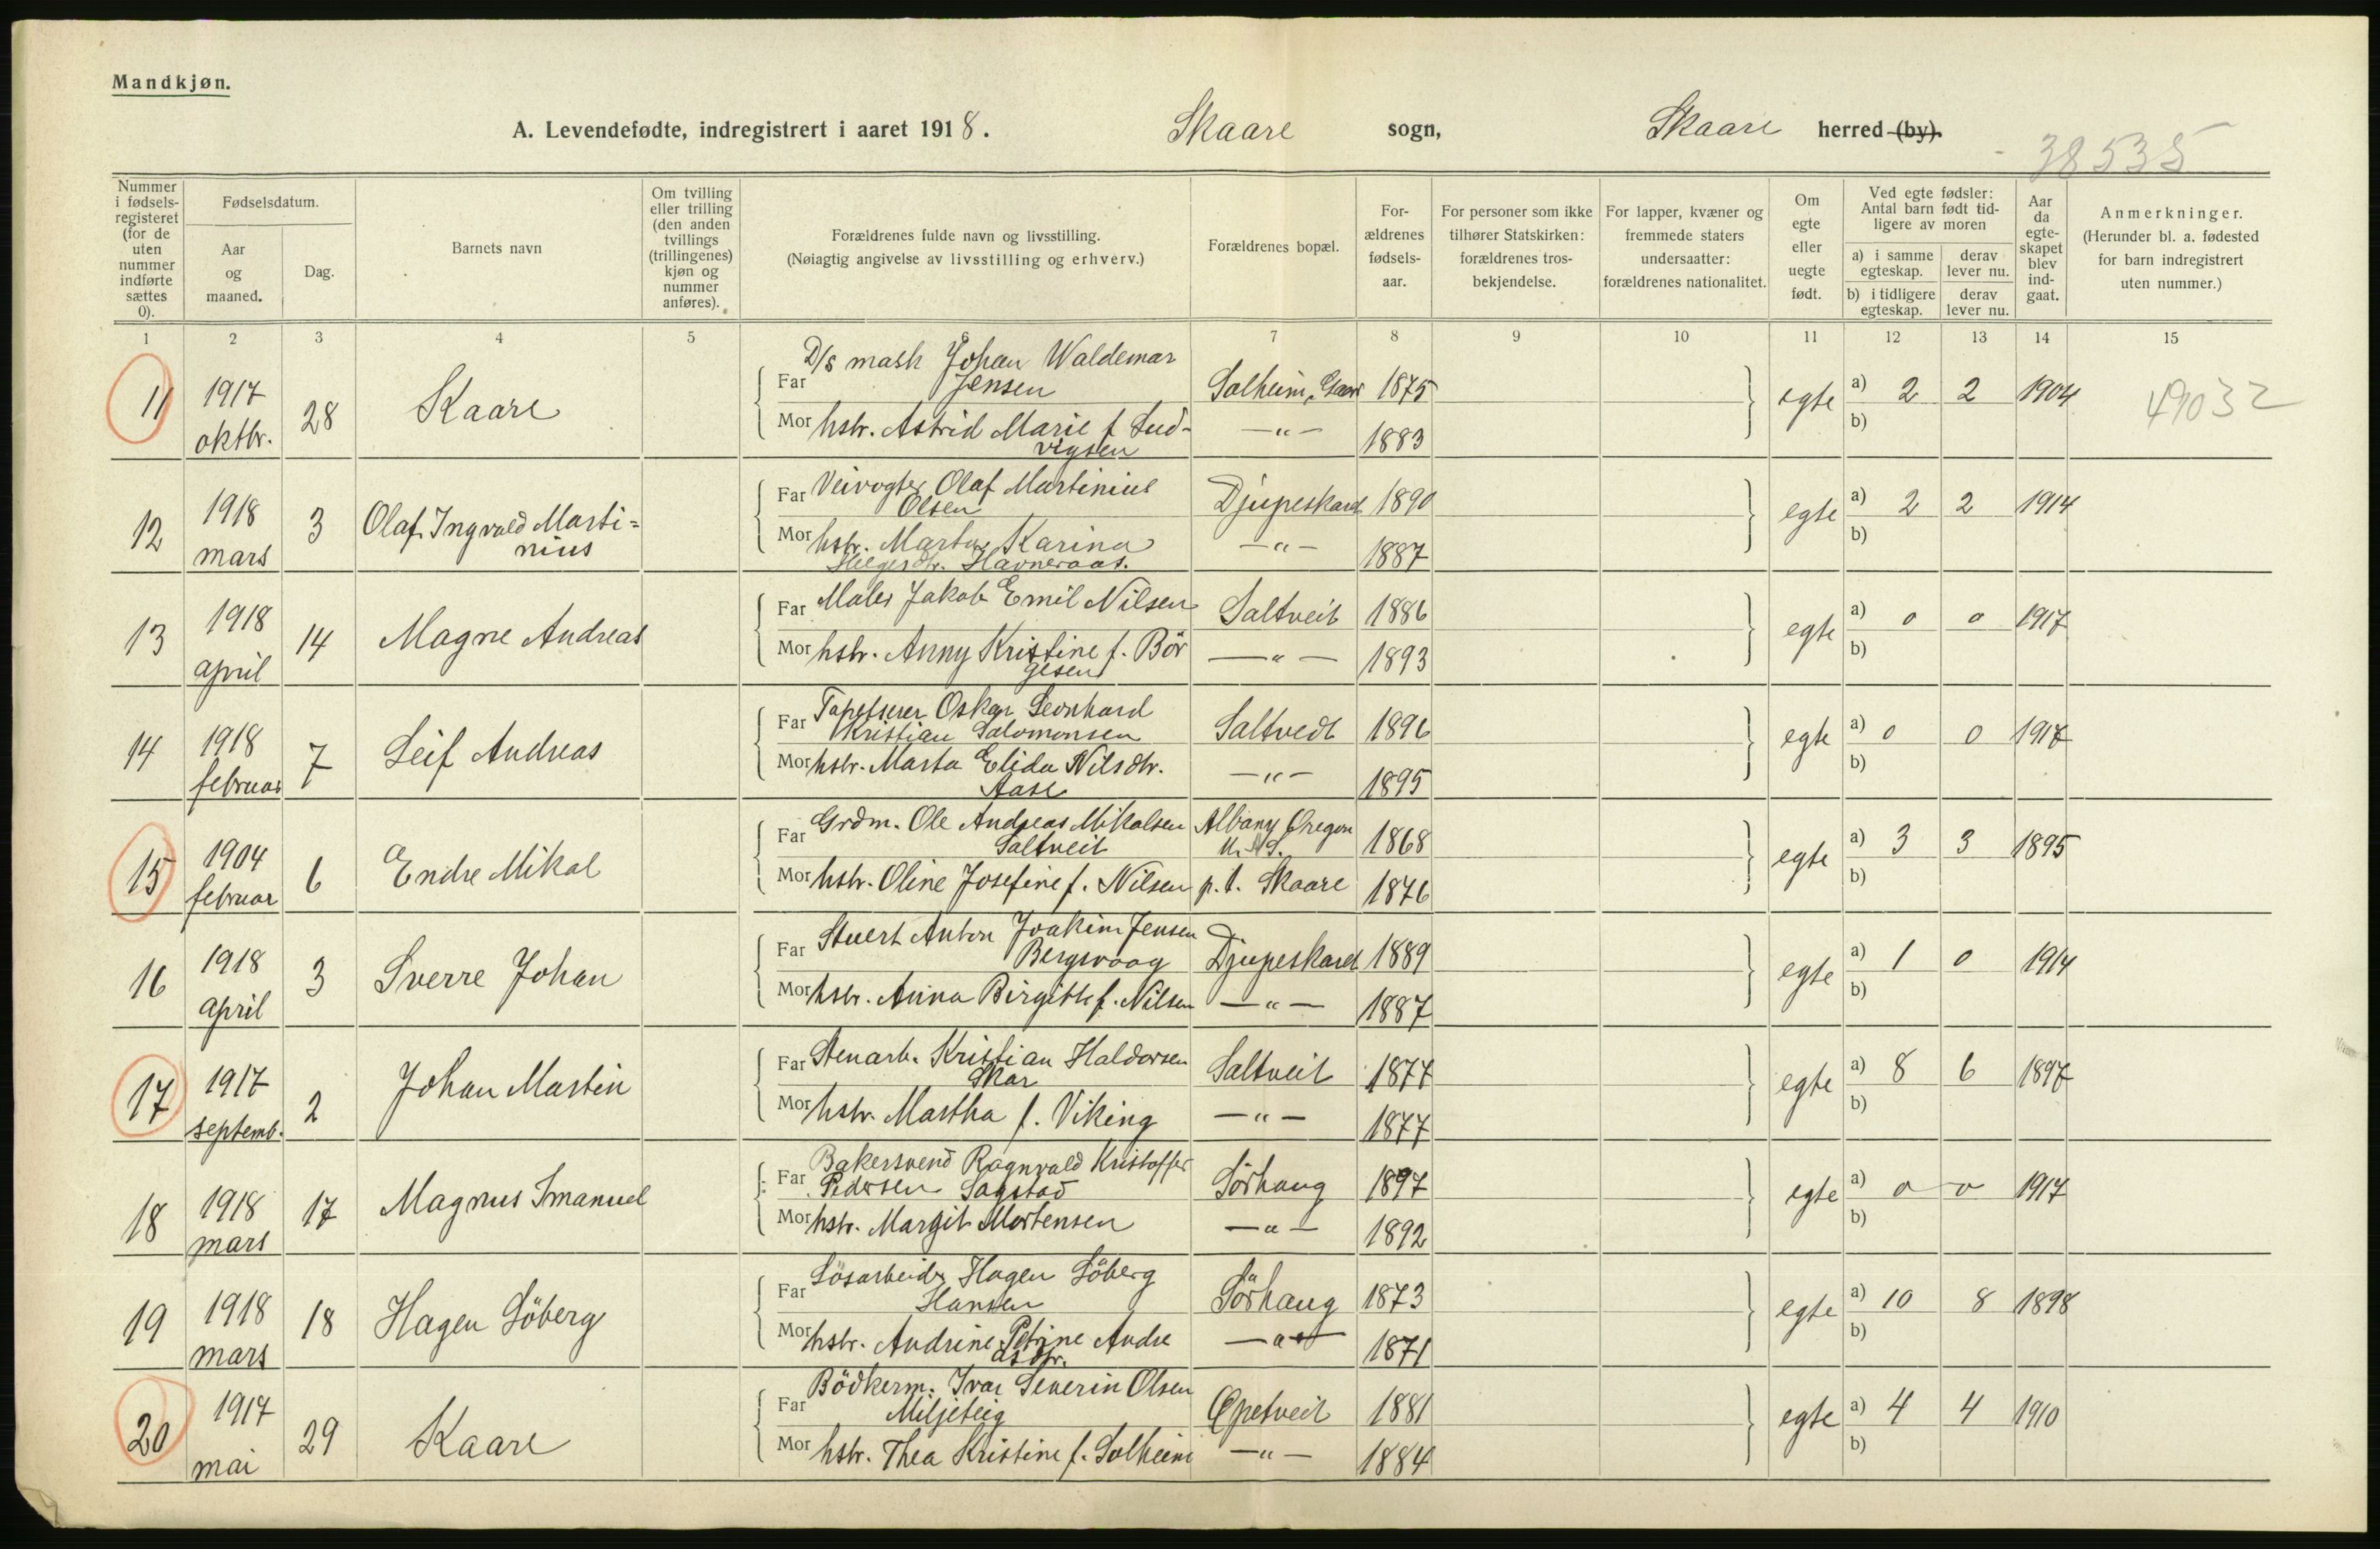 Mandkjøn.
A. Levendefødte, indregistrert i aaret 1918. Skaare sogn, Skaare herred (by).
38535
Nummer i fødsels-registeret (for de uten nummer indførte sættes 0).
Fødselsdatum.
Aar og maaned.
Dag.
Barnets navn
Om tvilling eller trilling (den anden tvillings (trillingenes) kjøn og nummer anføres).
Forældrenes fulde navn og livsstilling.
(Nøiagtig angivelse av livsstilling og erhverv.)
Forældrenes bopæl.
For-ældrenes fødsels-aar.
For personer som ikke tilhører Statskirken: forældrenes tros-bekjendelse.
For lapper, kvæner og fremmede staters undersaatter: forældrenes nationalitet.
Om egte eller uegte født.
Ved egte fødsler: Antal barn født tid-ligere av moren
a) i samme egteskap.
derav lever nu.
b) i tidligere egteskap.
derav lever nu.
Aar da egte-skapet blev ind-gaat.
Anmerkninger.
(Herunder bl. a. fødested for barn indregistrert uten nummer.)
1 2 3 4 5 6 7 8 9 10 11 12 13 14 15
11 1917 oktbr. 28 Kaare
Far D/s mask Johan Waldemar
Jensen Solheim, 1875 egte a) 2 2 1904 49032
Mor hstr. Astrid Marie f. Lud-
vigsen —"— 1883 b)
12 1918 mars 3 Olaf Ingvald Marti=
nius
Far Veivogter Olaf Martinius
Olsen Djupeskard 1890 egte a) 2 2 1914
Mor hstr. Marta Karina
Helgesdtr. Havneraas. —"— 1887 b)
13 1918 april 14 Magne Andreas
Far Maler Jakob Emil Nilsen Saltveit 1886 egte a) 0 0 1917
Mor hstr. Anny Kristine f. Bör
gesen —"— 1893 b)
14 1918 februar 7 Leif Andreas
Far Tapetserer Oskar Leonhard
Kristian Salomonsen Saltvedt 1896 egte a) 0 0 1917
Mor hstr. Marta Elida Nilsdtr.
Aase —"— 1895 b)
15 1904 februar 6 Endre Mikal
Far Grdm. Ole Andreas Mikalsen Albany Oregon
Saltveit U.S. 1868 egte a) 3 3 1895
Mor hstr. Oline Josefine f. Nilsen p.t. Skaare 1876 b)
16 1918 april 3 Sverre Johan
Far Stuert Anton Joakim Jensen
Bergsvaag Djupeskard 1889 egte a) 1 0 1914
Mor hstr. Anna Birgitte f. Nilsen —"— 1887 b)
17 1917 septemb. 2 Johan Martin
Far Stenarb. Kristian Haldorsen
Skar Saltveit 1877 egte a) 8 6 1897
Mor hstr. Martha f. Viking —"— 1877 b)
18 1918 mars 17 Magnus Imanuel
Far Bakersvend Ragnvald Kristoffer
Pedersen Sagstad Sörhaug 1897 egte a) 0 0 1917
Mor hstr. Margit Mortensen —"— 1892 b)
19 1918 mars 18 Hagen Söberg
Far Lösarbeider Hagen Söberg
Hansen Sörhaug 1873 egte a) 10 8 1898
Mor hstr. Andrine Petrine Andre
asdtr. —"— 1871 b)
20 1917 mai 29 Kaare
Far Bödkerm. Ivar Severin Olsen
Miljeteig Opetveit 1881 egte a) 4 4 1910
Mor hstr. Thea Kristine f. Solheim —"— 1884 b)